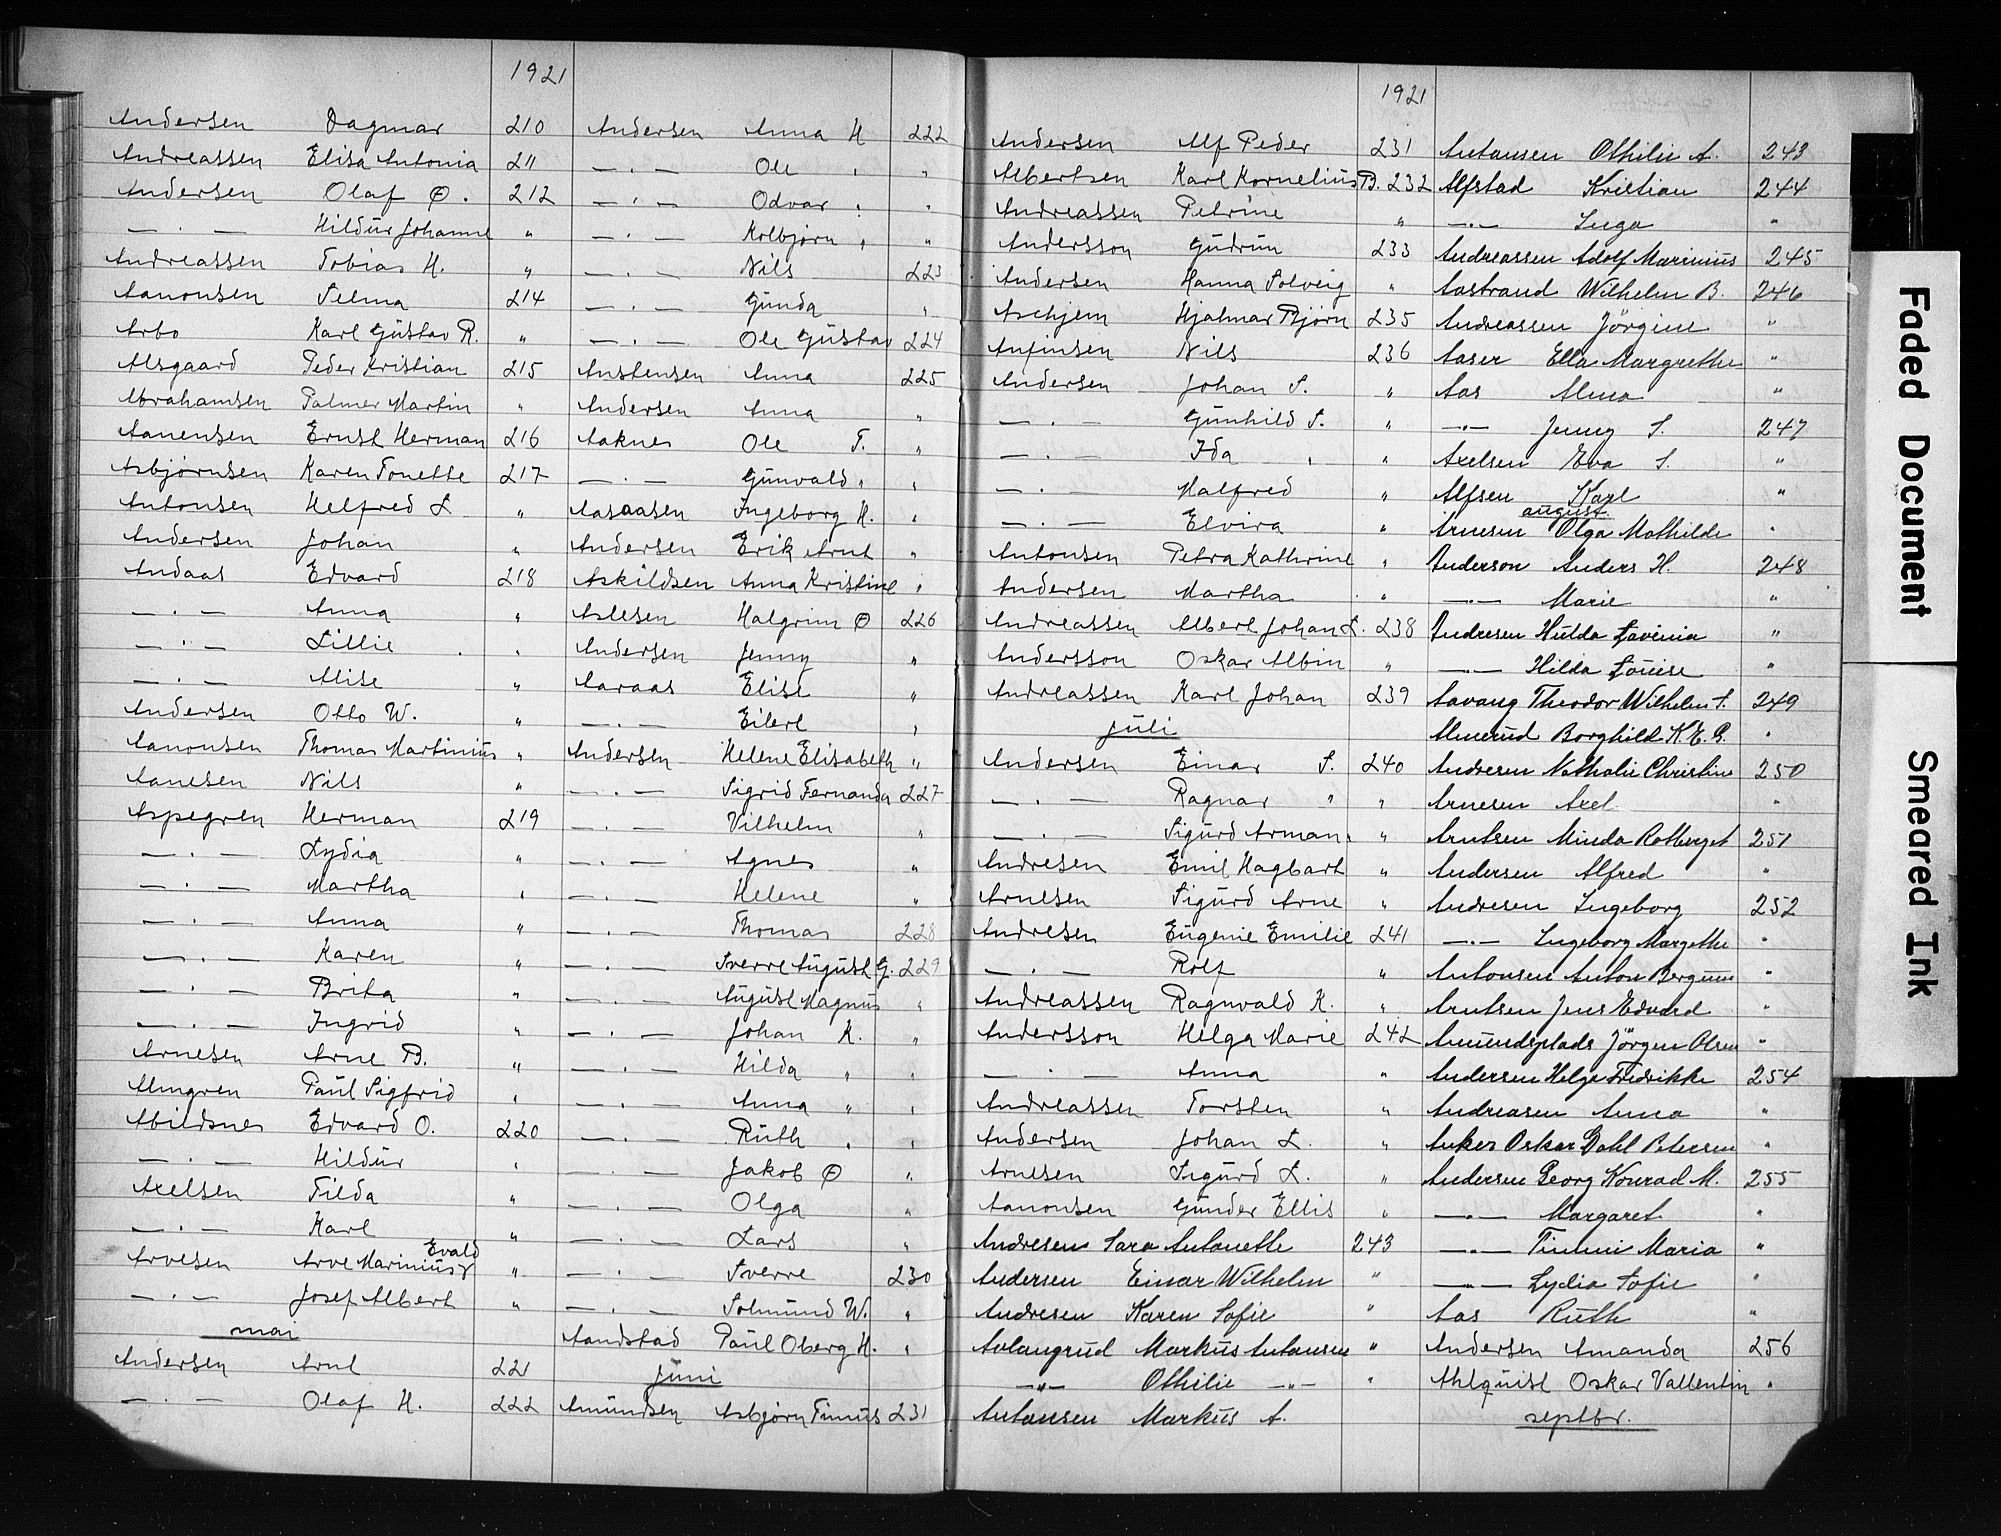 1921
Andersen Dagmar 210
Andreassen Elisa Antonia 211
Andersen Olaf Ø. 212
— . — Hildur Johanne "
Andreassen Tobias H. "
Aanonsen Selma 214
Arbo Karl Gustav R. "
Alsgaard Peder Kristian 215
Abrahamsen Palmer Martin "
Aanensen Ernst Herman 216
Asbjørnsen Karen Tonette 217
Antonsen Helfred L "
Andersen Johan "
Andaas Edvard 218
— . — Anna "
— . — Lillie "
— . — Alise "
Andersen Otto W. "
Aanonsen Thomas Martinius "
Aanesen Nils "
Aspegren Herman 219
— . — Lydia "
— . — Martha "
— . — Anna "
— . — Karen "
— . — Brita "
— . — Ingrid "
Arnesen Arne B. "
Almgren Paul Sigfrid "
Abildsnes Edvard O. 220
— . — Hildur "
Axelsen Tilda "
— . — Karl "
Arvesen Arve Marinius Evald "
— . — Josef Albert "
mai
Andersen Arnt 221
— . — Olaf H. 222
Andersen Anna H 222
— . — Ole " "
— . — Odvar " "
— . — Kolbjørn " "
— . — Nils 223
— . — Gunda "
— . — Ole Gustav 224
Anstensen Anna 225
Andersen Anna "
Aaknes Ole T. "
— . — Gunvald " "
Aasaasen Ingeborg H. "
Andersen Erik Arnt "
Askildsen Anna Kristine "
Aslesen Halgrim Ø 226
Andersen Jenny "
Aaraas Elise "
— . — Eilert "
Andersen Helene Elisabeth "
— . — Sigrid Fernanda 227
— . — Vilhelm "
— . — Agnes "
— . — Helene "
— . — Thomas 228
— . — Sverre August G. 229
— . — August Magnus "
— . — Johan K. "
— . — Hilda " "
— . — Anna " "
— . — Ruth " "
— . — Jakob Ø "
— . — Olga "
— . — Lars "
— . — Sverre 230
— . — Solmund W. "
Aandstad Paul Oberg H. "
juni
Amundsen Asbjørn Timus 231
1921
Andersen Alf Peder 231
Albertsen Karl Kornelius B. 232
Andreassen Petrine "
Andersson Gudrun 233
Andersen Hanna Solveig "
Aschjem Hjalmar Bjørn 235
Anfinsen Nils 236
Andersen Johan S. "
— . — Gunhild S. "
— . — Ida " "
— . — Halfred "
— . — Elvira "
Antonsen Petra Kathrine "
Andersen Martha "
Andreassen Albert Johan L. 238
Andersson Oskar Albin "
Andreassen Karl Johan 239
juli
Andersen Einar S. 240
— . — Ragnar " "
— . — Sigurd Arman " "
Andresen Emil Hagbart "
Arnesen Sigurd Arne "
Andresen Eugenie Emilie 241
— . — Rolf "
Andreassen Ragnvald K. "
Andersson Helga Marie 242
— . — Anna "
Andreassen Torsten "
Andersen Johan L. "
Arnesen Sigurd L. "
Aanonsen Gunder Ellis "
Andresen Sara Antonette 243
Andersen Einar Wilhelm "
Andresen Karen Sofie "
Aslangrud Markus Antonsen "
— " — Othilie — " — "
Antonsen Markus A.
Antonsen Othilie A. 243
Alfstad Kristian 244
— " — Inga "
Andreassen Adolf Marinius 245
Aastrand Wilhelm B. 246
Andreassen Jörgine "
Aaser Ella Margrethe "
Aas Alma "
— " — Jenny S. 247
Axelsen Eva S. "
Alfsen Karl "
august.
Arnesen Olga Mathilde "
Anderson Anders H. 248
— " — Marie "
Andresen Hulda Lavinia "
— " — Hilda Louise "
Aavang Theodor Wilhelm S. 249
Almerud Borghild K. E. G. "
Andresen Nathalie Christine 250
Arnesen Axel "
Arntsen Minda Rotberget 251
Andersen Alfred "
Andresen Ingeborg 252
— " — Ingeborg Margethe "
Antonsen Anton Bergum "
Arntsen Jens Edvard "
Amundsplads Jörgen Olsen "
Andersen Helga Fredrikke 254
Andreasen Anna "
Anker Oskar Dahl Petersen "
Andersen Georg Konrad M. 255
— " — Margaret "
— " — Timmi Maria "
— " — Lydia Sofie "
Aas Ruth "
Andersen Amanda 256
Ahlquist Oskar Vallentin "
septbr.
Faded Document
Smeared Ink